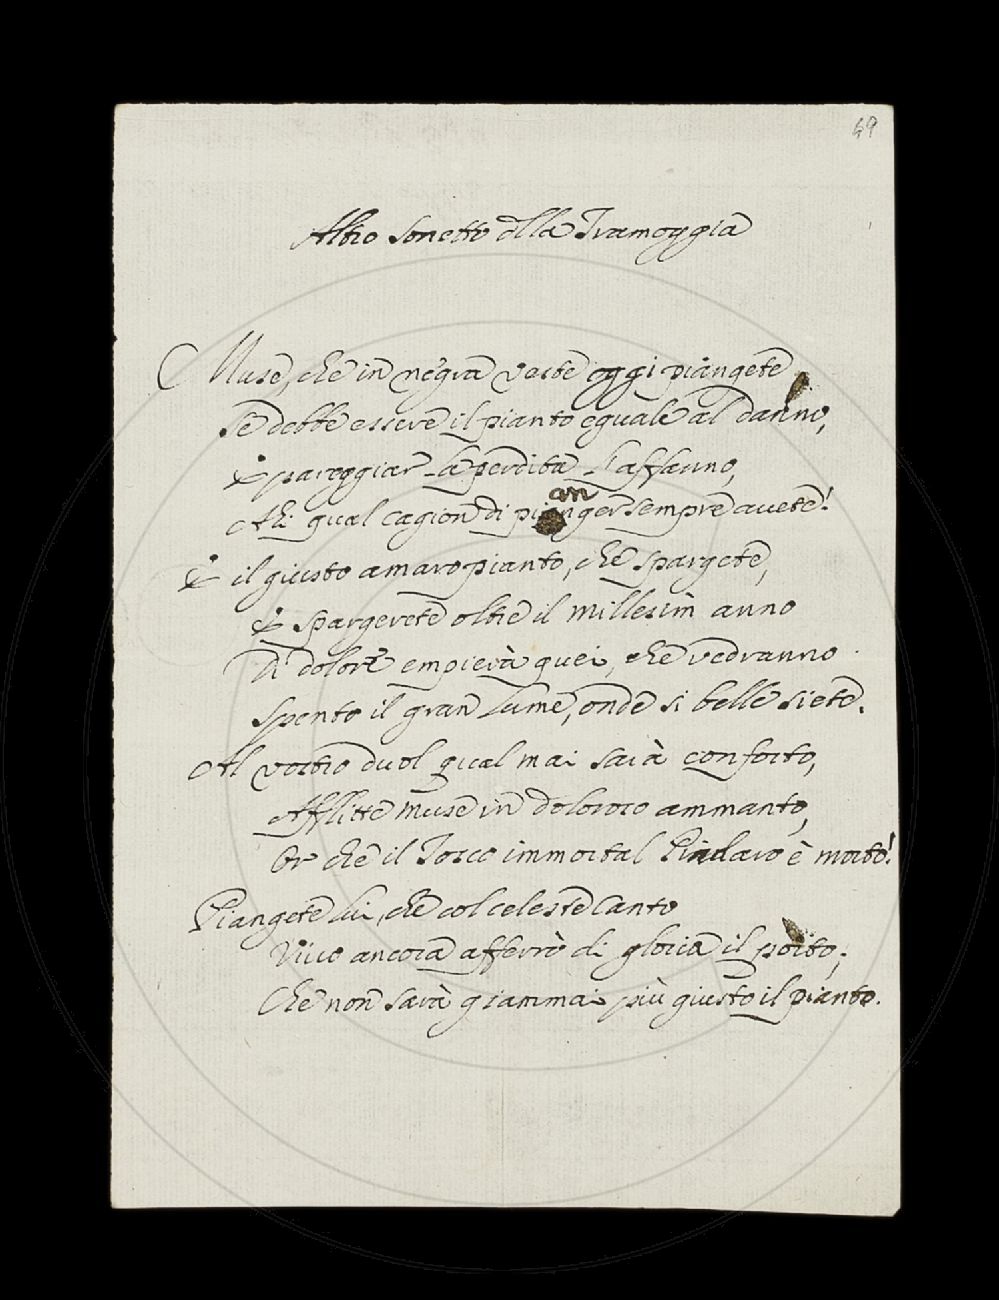 49
Altro Sonetto dlla Tramoggia
Muse, che in negra veste oggi piangete
Se debbe essere il pianto eguale al danno,
E pareggiar la perdita l'affanno,
an
Ahi qual cagion di pianger sempre avete!
E il giusto amaro pianto, che spargete,
E spargerete oltre il millesim anno
Di dolore empierà quei, che vedranno
Spento il gran lume, onde si belle siete.
Al vostro duol qual mai sarà conforto,
Afflitte Muse in doloroso ammanto,
Or che il Tosco immortal Pindaro è morto!
Piangete lui, che col celeste Canto
Vivo ancora afferrò di gloria il porto;
Che non sarà giammai più giusto il pianto.